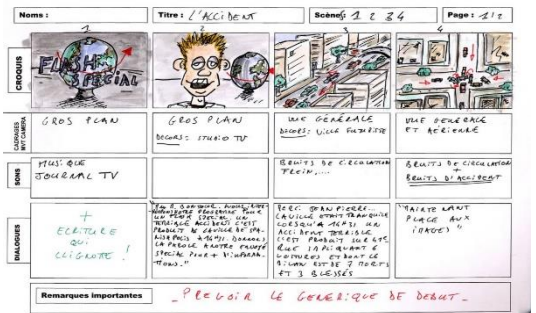 Noms :
Titre : L'ACCIDENT
Scènes: 1 2 3 4
Page : 1/2
1
2
3
4
CROQUIS
FLASH
SPECIAL
CADRAGES
MVT CAMERA
GROS PLAN
GROS PLAN
DECORS: STUDIO TV
VUE GENERALE
DECORS: VILLE FUTURISTE
VUE GENERALE
ET AERIENNE
SONS
MUSIQUE
JOURNAL TV
BRUITS DE CIRCULATION
FREIN,....
BRUITS DE CIRCULATION
+
BRUITS D'ACCIDENT
DIALOGUES
+
ECRITURE
QUI
CLIGNOTE !
BONJOUR. NOUS
PROGRAMME POUR
UN FLASH SPECIAL. UN
TERRIBLE ACCIDENT S'EST
PRODUIT DE LAVILLE DE
A 14H31. DONNONS
LA PAROLE A NOTRE ENVOYÉ
SPECIAL POUR + D'INFORMA-
TIONS."
JEAN PIERRE..
LAVILLE ETAIT TRANQUILLE
LORSQU'A 14H31 UN
ACCIDENT TERRIBLE
S'EST PRODUIT SUR
6
VOITURES ET DONT LE
BILAN EST DE 7 MORTS
ET 3 BLESSÉS
"MAINTENANT
PLACE AUX
IMAGES"
Remarques importantes
_ PREVOIR LE GENERIQUE DE DEBUT _